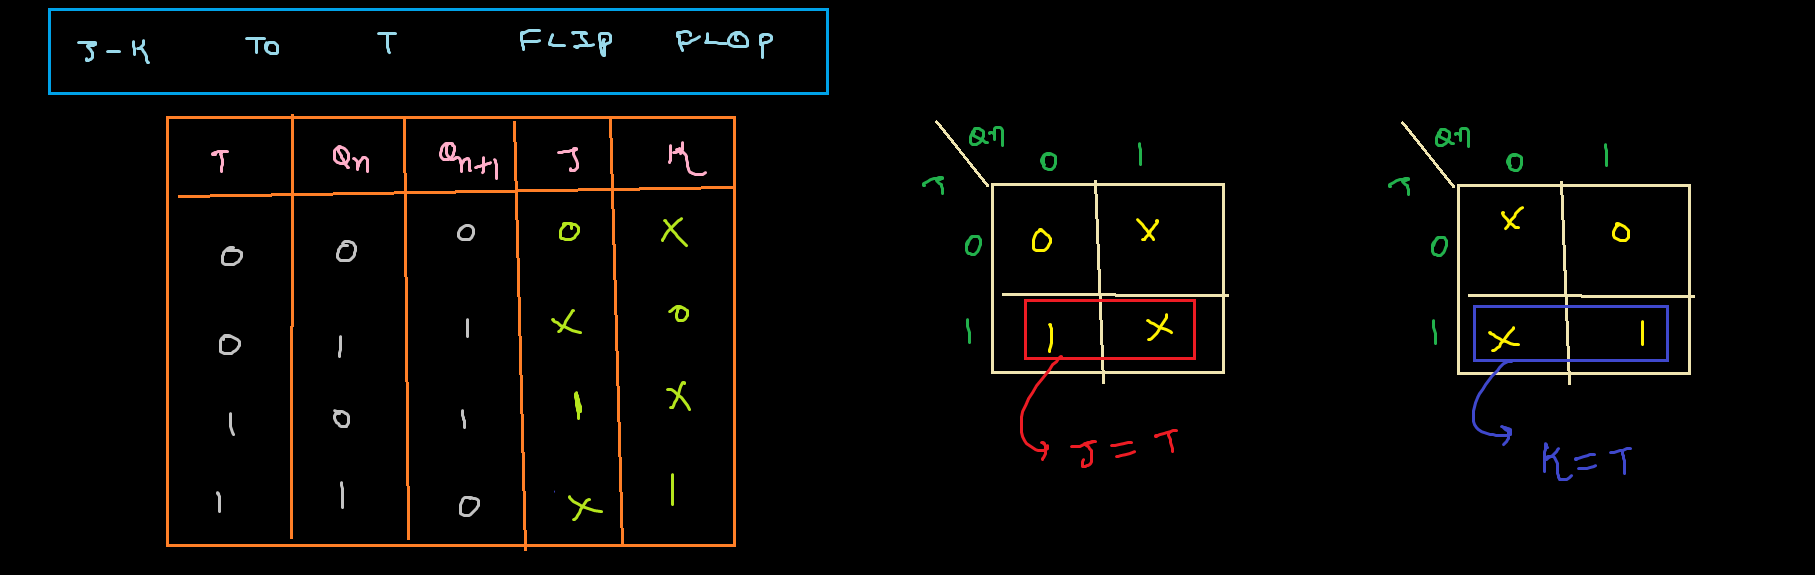 J-K TO T FLIP FLOP
T Qn Qn+1 J K
0 0 0 0 X
0 1 1 X 0
1 0 1 1 X
1 1 0 X 1
Qn
T
0 1
0 0 X
1 1 X
J = T
Qn
T
0 1
0 X 0
1 X 1
K = T